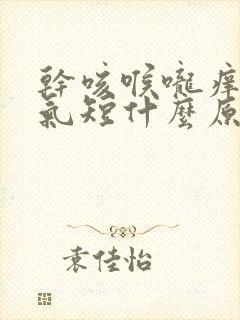 幹咳喉嚨癢
氣短什麼原
袁佳怡